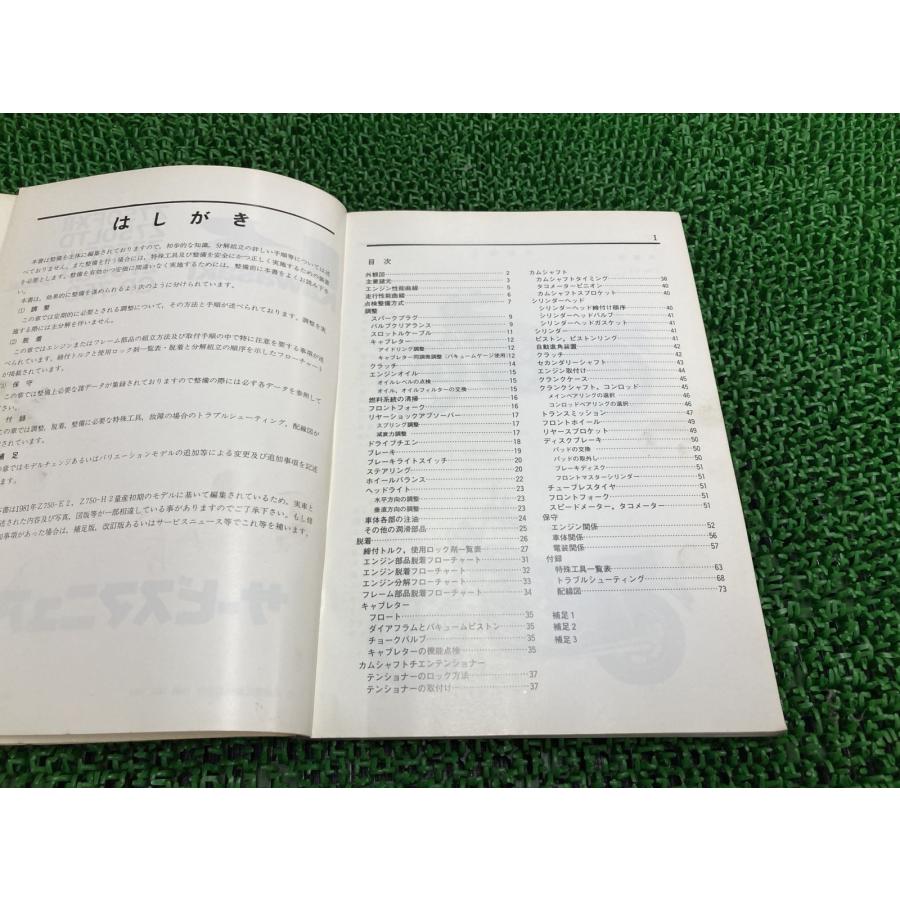 はしがき
本書は整備を主体に編集されておりますので、初歩的な知識、分解組立の詳しい手順等については述
べておりません。また整備を行う場合には、特殊工具及び整備を安全にかつ正しく実施するための装置
を必要とします。整備を有効かつ安価に間違いなく実施するためには、整備前に本書をよくお読み下さ
い。
本書は、効果的に整備を進められるよう次のように分けられています。
(1) 調 整
この章では定期的に必要とされる調整について、その方法と手順が述べられております。調整を実
施する際には主分解を伴いません。
(2) 脱 着
この章ではエンジンまたはフレーム部品の組立方法及び取付手順の中で特に注意を要する事項が述
べられています。締付トルクと使用ロック剤一覧表・脱着と分解組立の順序を示したフローチャート
が掲載されています。
保 守
この章では整備上必要な諸データが集録されておりますので整備の際には必ず各データを参照して
さい。
付 録
この章では調整、脱着、整備に必要な特殊工具、故障の場合のトラブルシューティング、配線図が
されています。
補 足
章ではモデルチェンジあるいはバリエーションモデルの追加等による変更及び追加事項を記述
ます。
本書は1981年Z750-E2、Z750-H2量産初期のモデルに基いて編集されているため、実車と
述された内容及び写真、図版等が一部相違している事がありますのでご了承下さい。もし修
事項があった場合は、補足版、改訂版あるいはサービスニュース等でこれ等を補います。
1
目 次
外観図 2
主要諸元 3
エンジン性能曲線 5
走行性能曲線 6
点検整備方式 7
調整
スパークプラグ 9
バルブクリアランス 9
スロットルケーブル 11
キャブレター 12
アイドリング調整 12
キャブレター同調微調整(バキュームゲージ使用) 12
クラッチ 14
エンジンオイル 15
オイルレベルの点検 15
オイル、オイルフィルターの交換 15
燃料系統の清掃 16
フロントフォーク 16
リヤーショックアブソーバー 17
スプリング調整 17
減衰力調整 17
ドライブチエン 18
ブレーキ 19
ブレーキライトスイッチ 20
ステアリング 20
ホイールバランス 22
ヘッドライト 23
水平方向の調整 23
垂直方向の調整 23
車体各部の注油 24
その他の潤滑部品 25
脱着 26
締付トルク、使用ロック剤一覧表 27
エンジン部品脱着フローチャート 31
エンジン脱着フローチャート 32
エンジン分解フローチャート 33
フレーム部品脱着フローチャート 34
キャブレター
フロート 35
ダイアフラムとバキュームピストン 35
チョークバルブ 35
キャブレターの機能点検 35
カムシャフトチエンテンショナー
テンショナーのロック方法 37
テンショナーの取付け 37
カムシャフト
カムシャフトタイミング 38
タコメーターピニオン 40
カムシャフトスプロケット 40
シリンダーヘッド
シリンダーヘッド締付け順序 40
シリンダーヘッドバルブ 41
シリンダーヘッドガスケット 41
シリンダー 41
ピストン、ピストンリング 41
自動進角装置 42
クラッチ 42
セカンダリーシャフト 43
エンジン取付け 44
クランクケース 44
クランクシャフト、コンロッド 45
メインベアリングの選択 46
コンロッドベアリングの選択 46
トランスミッション 47
フロントホイール 49
リヤースプロケット 49
ディスクブレーキ 50
パッドの交換 50
パッドの取外し 50
ブレーキディスク 51
フロントマスターシリンダー 51
チューブレスタイヤ 51
フロントフォーク 51
スピードメーター、タコメーター 51
保守
エンジン関係 52
車体関係 56
電装関係 57
付録
特殊工具一覧表 63
トラブルシューティング 68
配線図 73
補足1
補足2
補足3